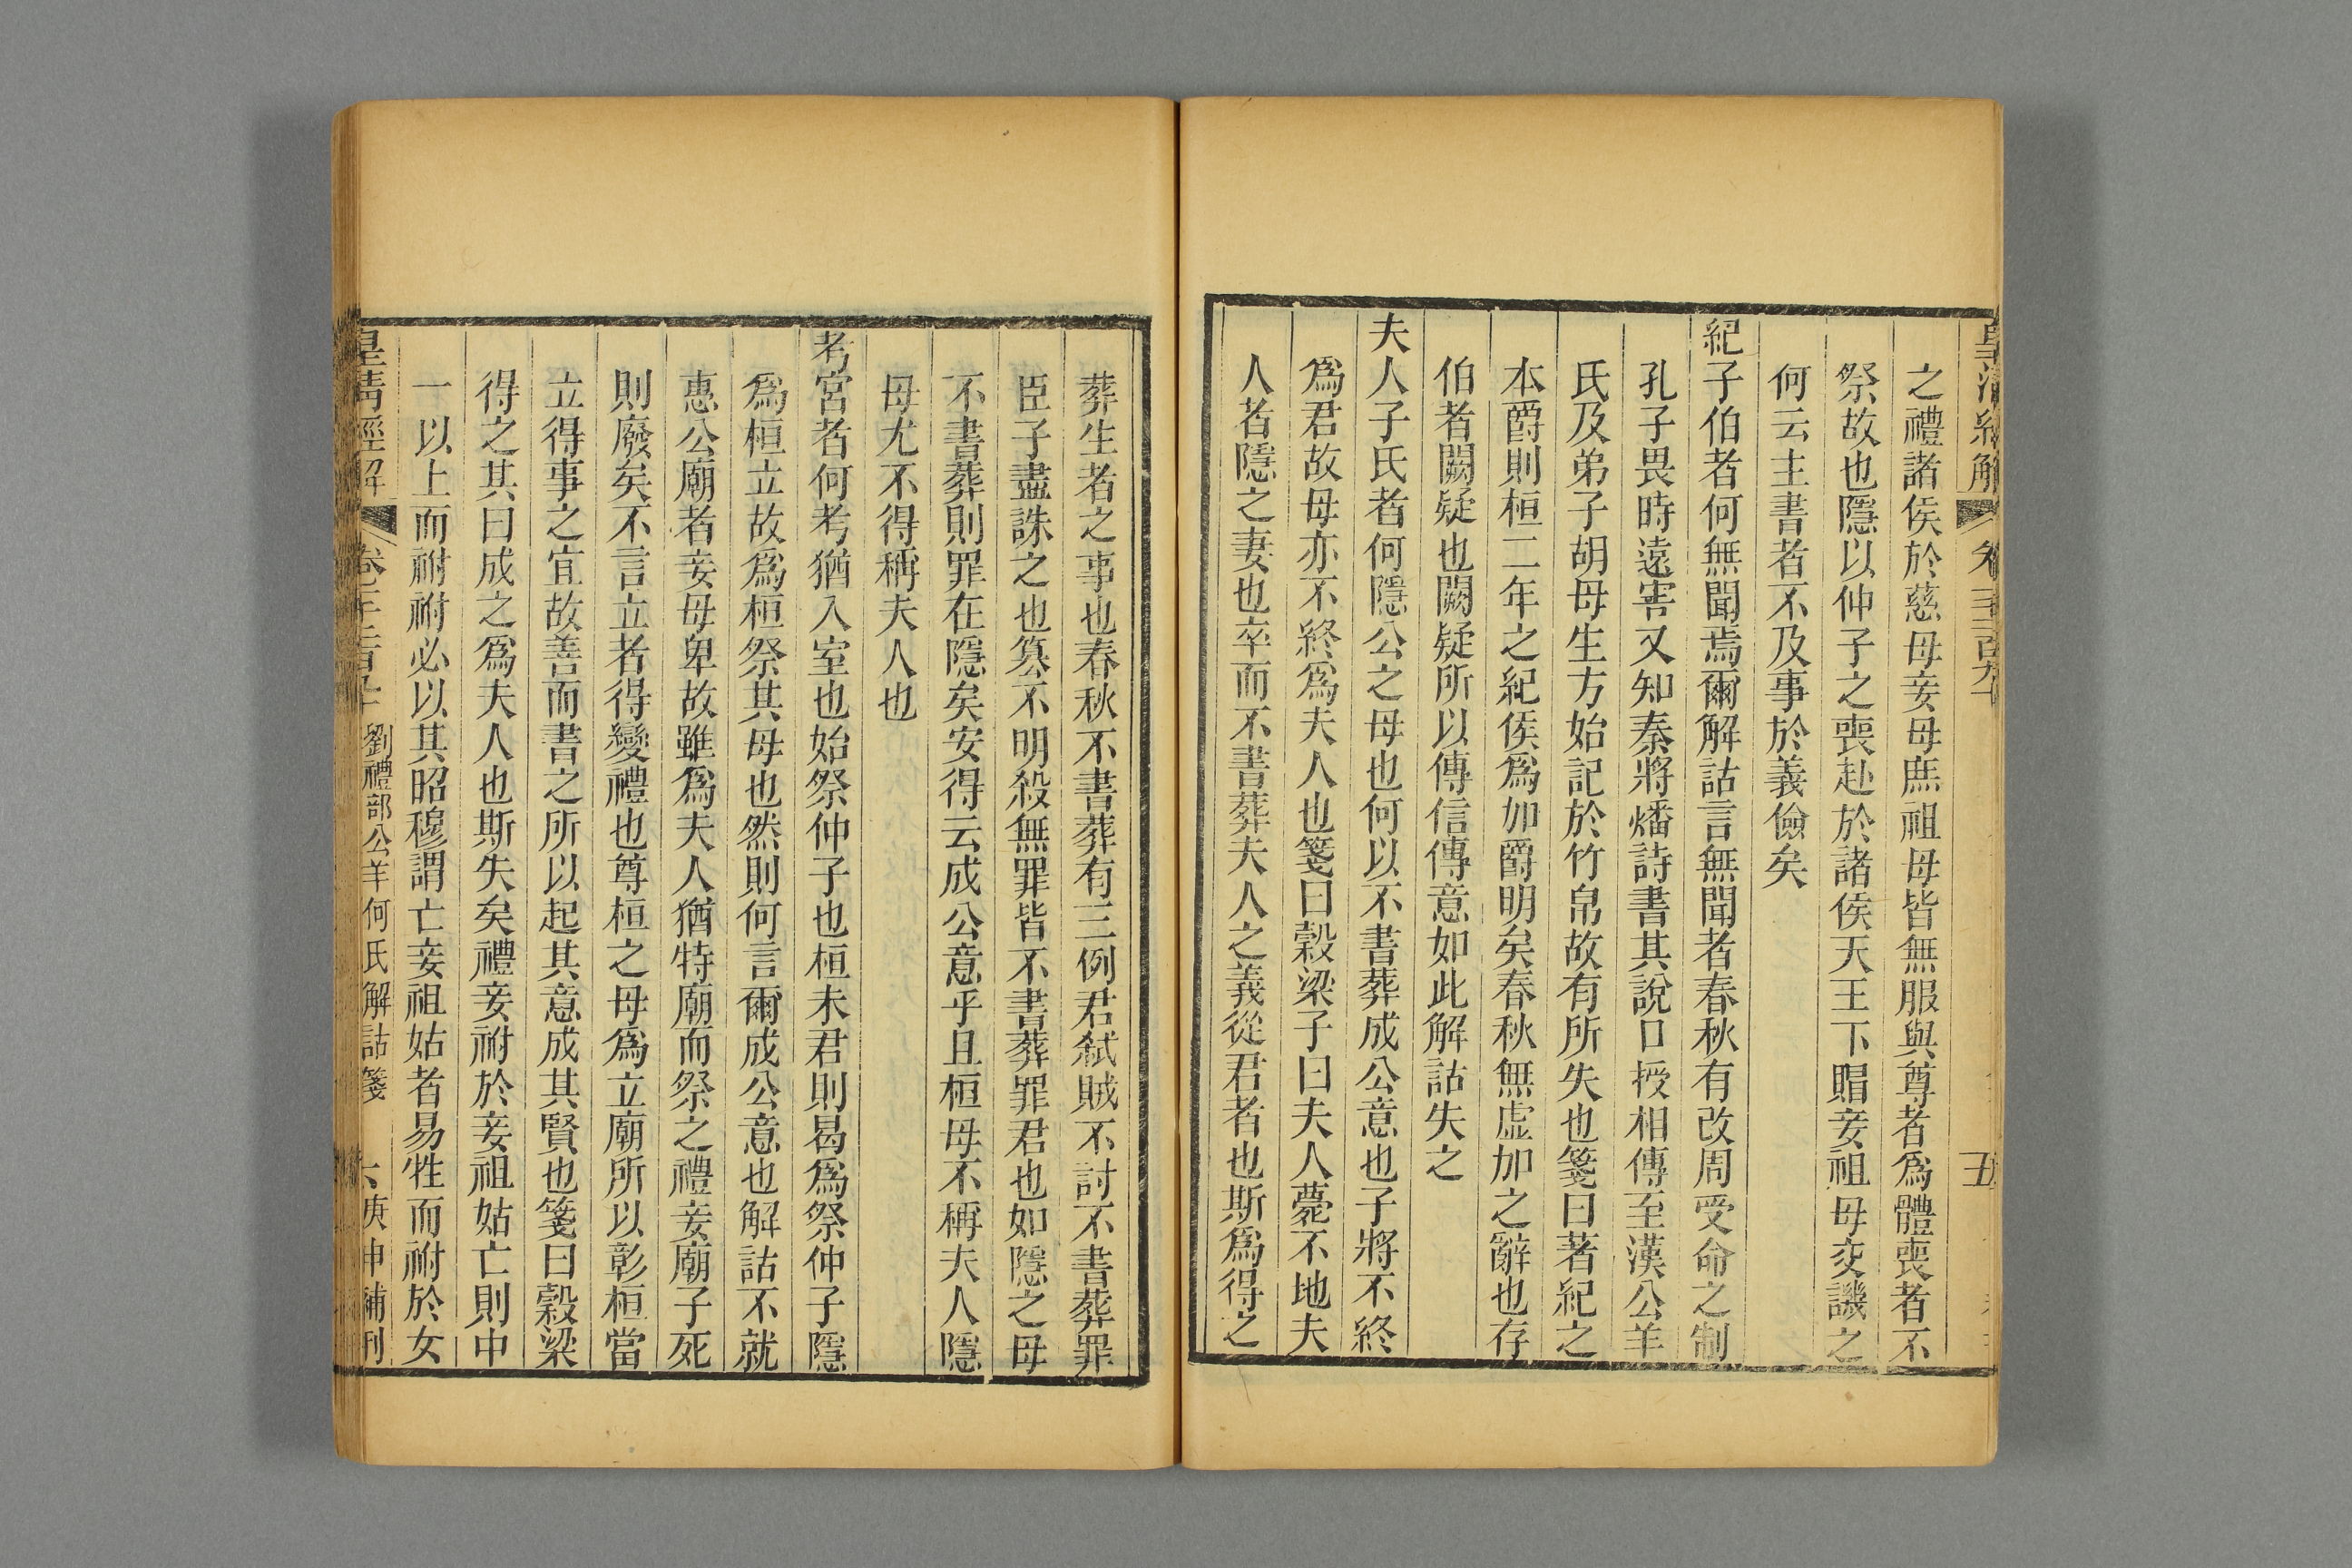 皇清經解
卷千二百九十
五
之禮諸侯於慈母妾母庶祖母皆無服與尊者爲體喪者不
祭故也隱以仲子之喪赴於諸侯天王下賵妾祖母交譏之
何云主書者不及事於義儉矣
紀子伯者何無聞焉爾解詁言無聞者春秋有改周受命之制
孔子畏時遠害又知秦將燔詩書其說口授相傳至漢公羊
氏及弟子胡母生方始記於竹帛故有所失也箋曰著紀之
本爵則桓二年之紀侯爲加爵明矣春秋無虛加之辭也存
伯者闕疑也闕疑所以傳信傳意如此解詁失之
夫人子氏者何隱公之母也何以不書葬成公意也子將不終
爲君故母亦不終爲夫人也箋曰榖梁子曰夫人薨不地夫
人者隱之妻也卒而不書葬夫人之義從君者也斯爲得之
葬生者之事也春秋不書葬有三例君弒賊不討不書葬罪
臣子盡誅之也篡不明殺無罪皆不書葬罪君也如隱之母
不書葬則罪在隱矣安得云成公意乎且桓母不稱夫人隱
母尤不得稱夫人也
考宮者何考猶入室也始祭仲子也桓未君則曷爲祭仲子隱
爲桓立故爲桓祭其母也然則何言爾成公意也解詁不就
惠公廟者妾母卑故雖爲夫人猶特廟而祭之禮妾廟子死
則廢矣不言立者得變禮也尊桓之母爲立廟所以彰桓當
立得事之宜故善而書之所以起其意成其賢也箋曰榖梁
得之其曰成之爲夫人也斯失矣禮妾祔於妾祖姑亡則中
一以上而祔祔必以其昭穆謂亡妾祖姑者易牲而祔於女
皇清經解
劉禮部公羊何氏解詁箋
六
庚申補刊